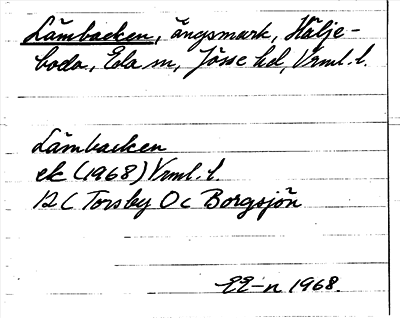 Lämbacken, ängsmark, Hälje-
boda, Eda sn, Jösse hd, Vrml. l.
Lämbacken
ek (1968) Vrml. l.
12 C Torsby O c Borgsjön
EE-n 1968.